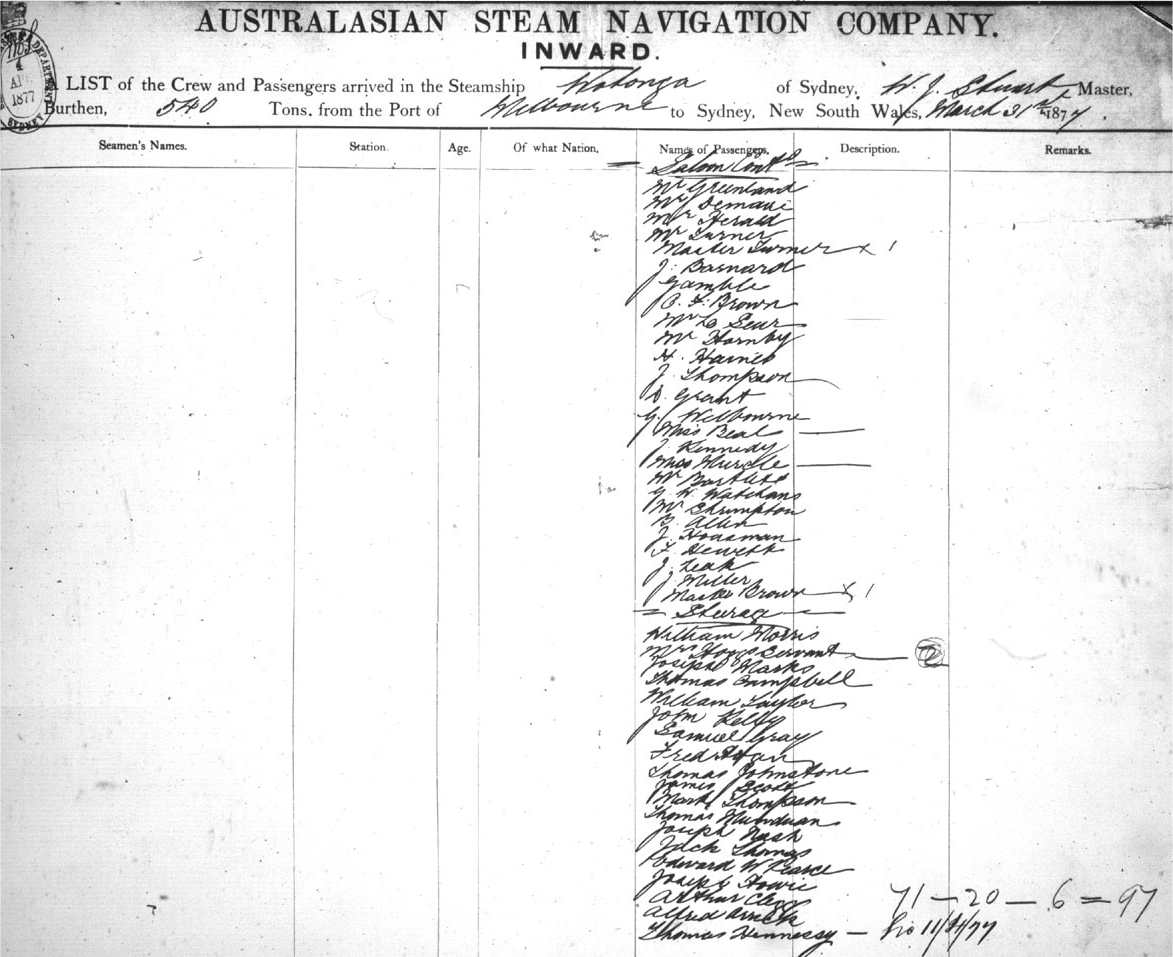 AUSTRALASIAN STEAM NAVIGATION COMPANY.
INWARD.
A LIST of the Crew and Passengers arrived in the Steamship Wotonga of Sydney, W. J. Stuart Master,
Burthen, 540 Tons, from the Port of Melbourne to Sydney, New South Wales, March 31st 1877.
4
1877
SYDNEY
Seamen's Names. Station. Age. Of what Nation, Names of Passengers, Description. Remarks.
Saloon Contd
Mr Greenland
Mr
Mr Herald
Mr Turner
Master Turner x 1
J. Barnard
Gamble
C. F. Brown
Mr
Mr Hornby
H.
J. Thompson
D. Grant
G. Welbourne
Miss Beal
J. Kennedy
Miss
Mr Bartlett
G. W.
Mr Shrimpton
B. Allen
J.
F. Hewett
J. Leak
J. Miller
Master Brown x 1
Steerage
William Morris
Servant 2
Joseph Marks
Thomas Campbell
William Taylor
John Kelly
Samuel Gray
Fred
Thomas Johnstone
James Scott
Mark Thompson
Thomas
Joseph Nash
Jack Thomas
Edward W Pearce
Joseph Howie
Arthur
71 – 20 – 6 = 97
Alfred
Thomas Hennessy – 11/4/77